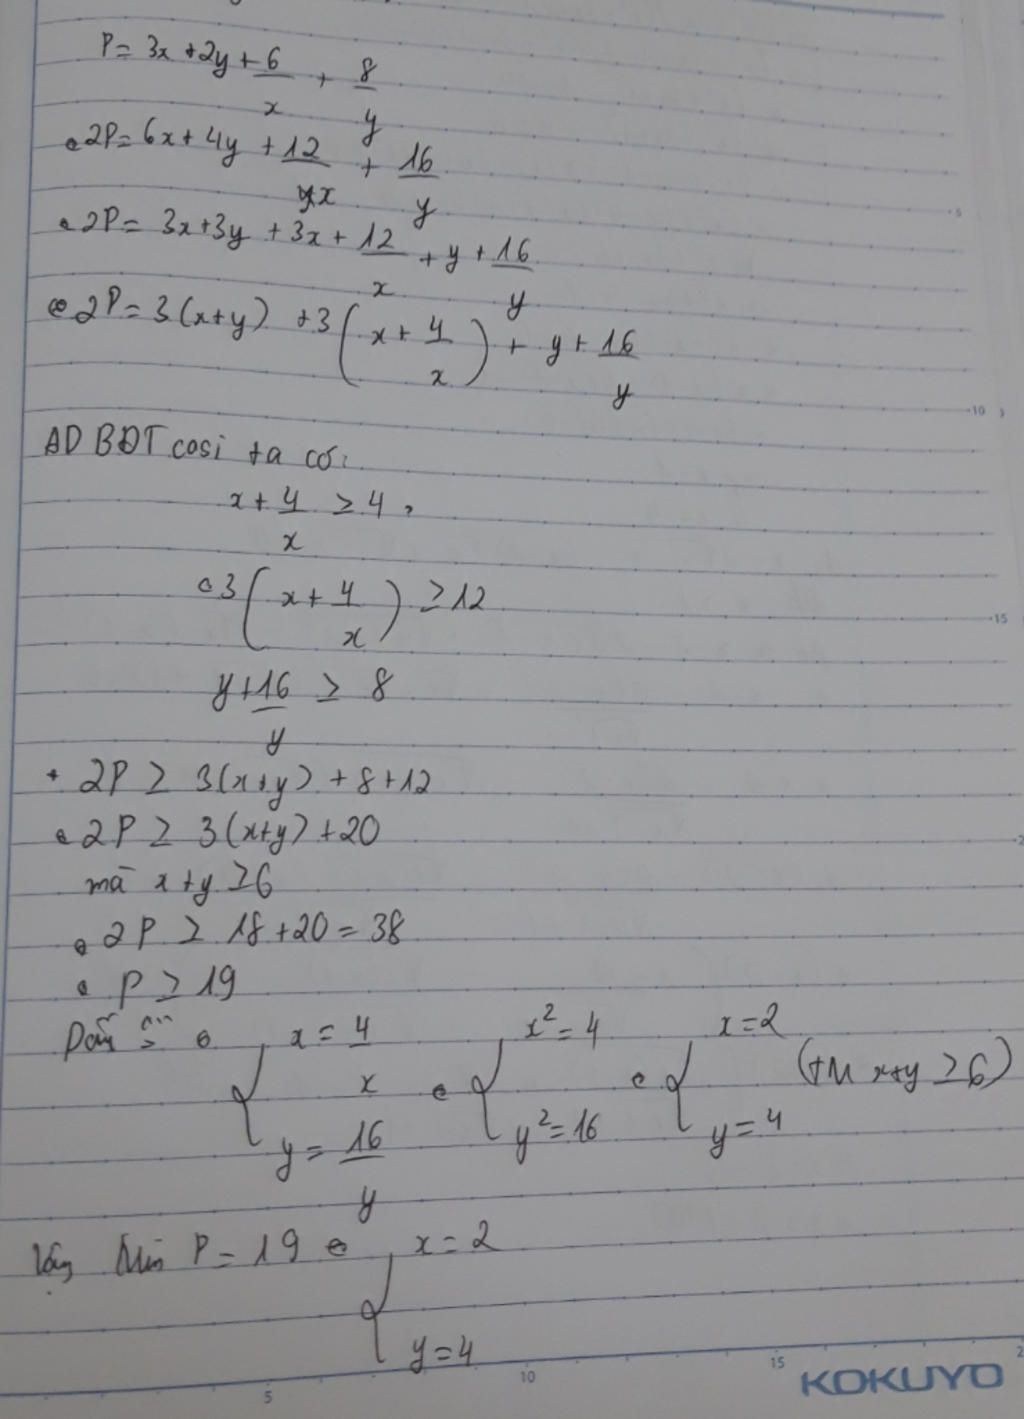 P = 3x + 2y + 6/x + 8/y
2P = 6x + 4y + 12/x + 16/y
2P = 3x + 3y + 3x + 12/x + y + 16/y
2P = 3(x+y) + 3(x + 4/x) + y + 16/y
AD BĐT cosi ta có:
x + 4/x ≥ 4
3(x + 4/x) ≥ 12
y + 16/y ≥ 8
2P ≥ 3(x+y) + 8 + 12
2P ≥ 3(x+y) + 20
mà x + y ≥ 6
2P ≥ 18 + 20 = 38
P ≥ 19
Dấu "=" { x = 4/x, y = 16/y { x² = 4, y² = 16 { x = 2, y = 4 (TM x+y ≥ 6)
Vậy Min P = 19 { x = 2, y = 4
5 10 15
KOKUYO